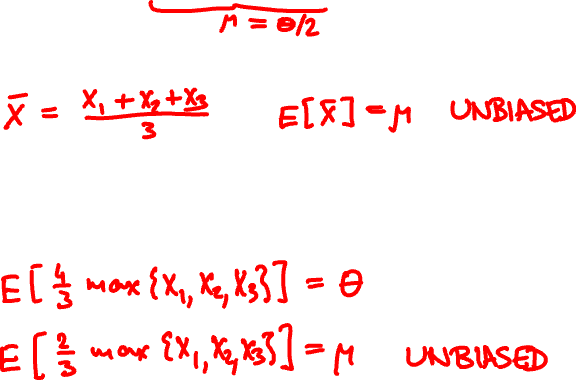 μ = θ/2
X̄ = (X₁ + X₂ + X₃)/3 E[X̄] = μ UNBIASED
E[4/3 max{X₁, X₂, X₃}] = θ
E[2/3 max{X₁, X₂, X₃}] = μ UNBIASED